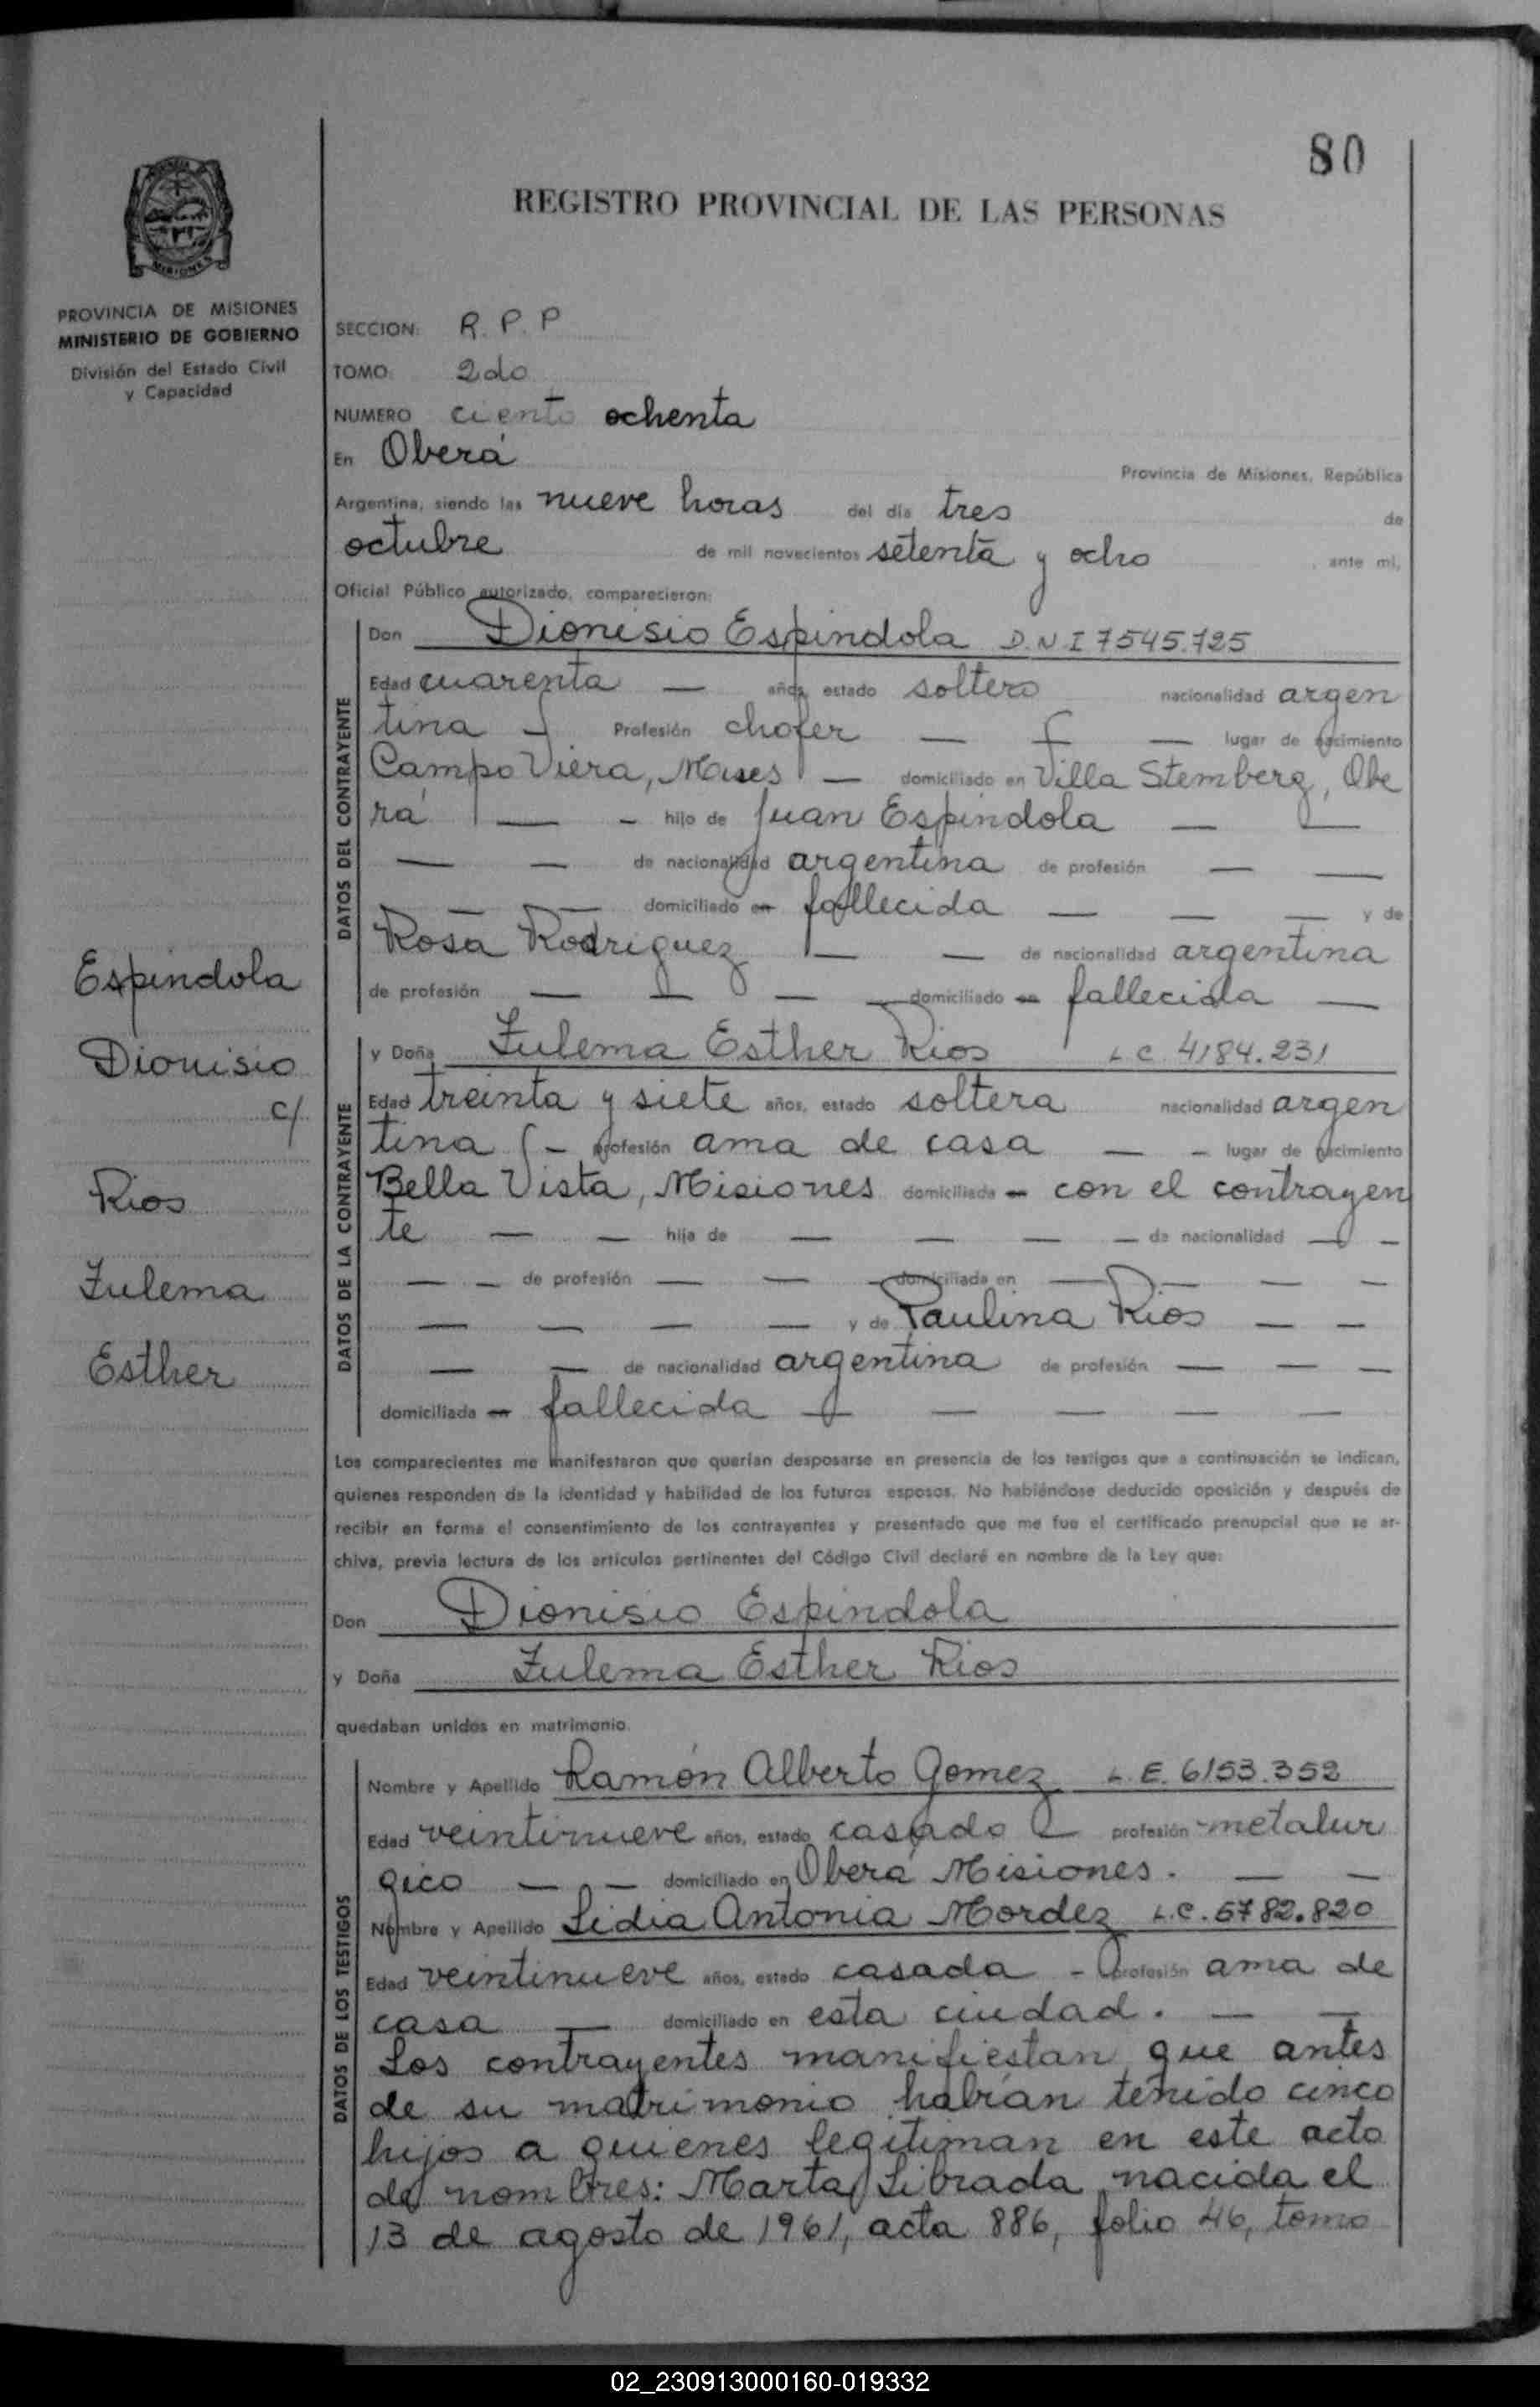 80
REGISTRO PROVINCIAL DE LAS PERSONAS
MISIONES
PROVINCIA DE MISIONES
MINISTERIO DE GOBIERNO
División del Estado Civil
y Capacidad
SECCION: R. P. P
TOMO: 2do
NUMERO ciento ochenta
En Oberá
Provincia de Misiones, República
Argentina, siendo las nueve horas del día tres de
octubre de mil novecientos setenta y ocho, ante mi,
Oficial Público autorizado, comparecieron:
DATOS DEL CONTRAYENTE
Don Dionisio Espindola D.N.I 7545.725
Edad cuarenta — años, estado soltero nacionalidad argen
tina — Profesión chofer — — — lugar de nacimiento
Campo Viera, Mnes — domiciliado en Villa Stemberg, Obe
rá — - hijo de Juan Espindola — —
— — de nacionalidad argentina de profesión — —
— — domiciliado en fallecida — — — y de
Rosa Rodriguez — — de nacionalidad argentina
de profesión — — — — domiciliado en fallecida —
Espindola
Dionisio
c/
Rios
Zulema
Esther
DATOS DE LA CONTRAYENTE
y Doña Zulema Esther Rios L C. 4184.231
Edad treinta y siete años, estado soltera nacionalidad argen
tina - profesión ama de casa — - lugar de nacimiento
Bella Vista, Misiones domiciliada - con el contrayen
te — — hija de — — — — de nacionalidad — -
— — de profesión — — - domiciliada en — — — —
— — — — y de Paulina Rios — —
— — de nacionalidad argentina de profesión — — —
domiciliada en fallecida — — — — —
Los comparecientes me manifestaron que querían desposarse en presencia de los testigos que a continuación se indican,
quienes responden de la identidad y habilidad de los futuros esposos. No habiéndose deducido oposición y después de
recibir en forma el consentimiento de los contrayentes y presentado que me fue el certificado prenupcial que se ar-
chiva, previa lectura de los artículos pertinentes del Código Civil declaré en nombre de la Ley que:
Don Dionisio Espindola
y Doña Zulema Esther Rios
quedaban unidos en matrimonio.
DATOS DE LOS TESTIGOS
Nombre y Apellido Ramón Alberto Gomez L.E. 6153.352
Edad veintinueve años, estado casado — profesión metalur
gico — — domiciliado en Oberá Misiones. — —
Nombre y Apellido Lidia Antonia Mordez L.C. 5782.820
Edad veintinueve años, estado casada - profesión ama de
casa — domiciliado en esta ciudad. — —
Los contrayentes manifiestan que antes
de su matrimonio habían tenido cinco
hijos a quienes legitiman en este acto
de nombres: Marta Librada nacida el
13 de agosto de 1961, acta 886, folio 46, tomo
02_230913000160-019332